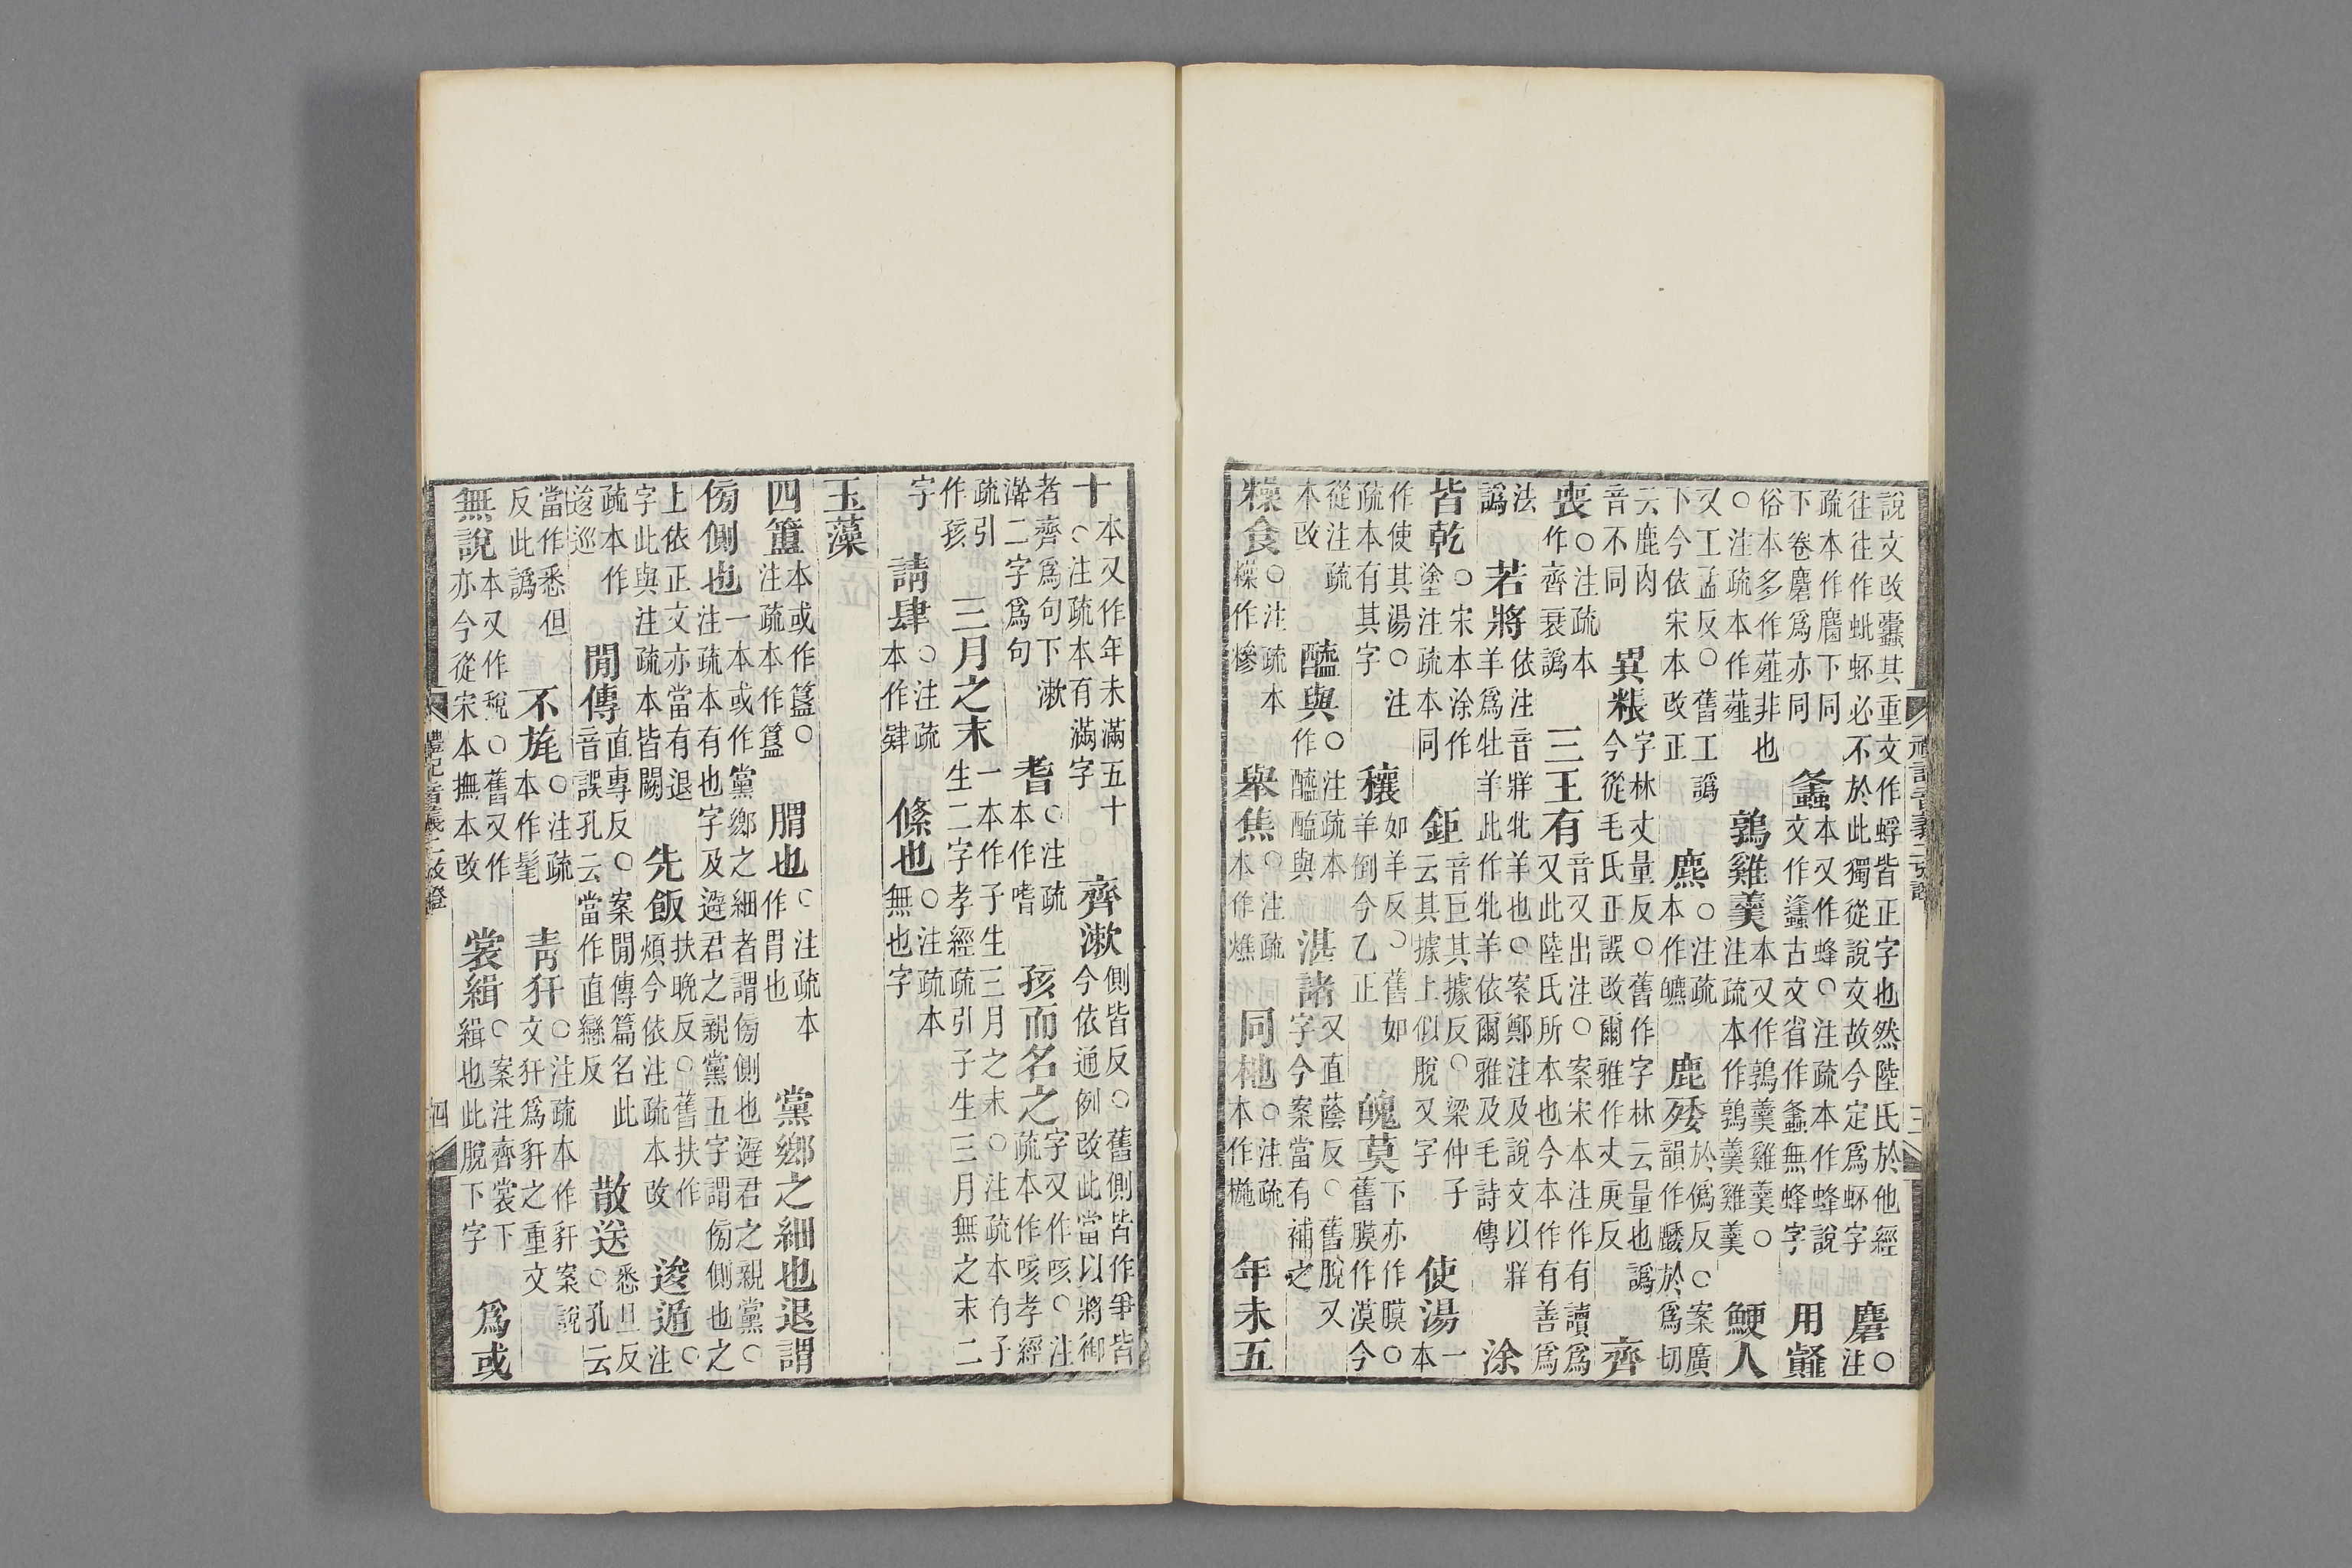 說文改蠹其重文作蜉皆正字也然陸氏於他經
往往作蚍蚍必不於此獨從說文故今定爲蚍字
麕○注
疏本作麕下同
下卷麕爲亦同
螽本又作蜂○注疏本作蜂說
文作蠭古文省作螽無蜂字
用虀
俗本多作薤非也
○注疏本作薤
鶉雞羹本又作鶉羹雞羹○
注疏本作鶉羹雞羹
鯁人
又工孟反○舊工譌
下今依宋本改正
麃○注疏
本作皫
鹿矮於僞反○案廣
韻作踒於爲切
云鹿肉
音不同
異粻字林丈量反○舊作字林云量也譌
今從毛氏正誤改爾雅作丈庚反
齊
喪○注疏本
作齊衰譌
三王有音又出注○案宋本注作有讀爲
又此陸氏所本也今本作有善爲
法
譌
若將依注音牂牝羊也○案鄭注及說文以牂
羊爲牡羊此作牝羊依爾雅及毛詩傳
涂
皆乾○宋本涂作
塗注疏本同
鉅音巨其據反○梁仲子
云其據上似脫又字
使湯一
本
作使其湯○注
疏本有其字
穰如羊反○舊如
羊倒今乙正
䰟莫下亦作膜○
舊膜作漠今
從注疏
本改
醯與○注疏本
作醯醢與
湛諸又直蔭反○舊脫又
字今案當有補之
糝食○注疏本
糝作慘
皋焦○注疏
本作燋
同杝○注疏
本作椸
年未五
禮記音義二攷證
三
十本又作年未滿五十
○注疏本有滿字
齊漱側皆反○舊側皆作爭皆
今依通例改此當以將御
者齊爲句下漱
澣二字爲句
耆○注疏
本作嗜
孩而名之字又作咳○注
疏本作咳孝經
疏引
作孩
三月之末一本作子生三月之末○注疏本有子
生二字孝經疏引子生三月無之末二
字
請肆○注疏
本作肄
儵也○注疏本
無也字
玉藻
四簠本或作簋○
注疏本作簋
䐣也○注疏本
作胃也
黨鄉之細也退謂
傍側也一本或作黨鄉之細者謂傍側也避君之親黨○
注疏本有也字及避君之親黨五字謂傍側也之
上依正文亦當有退
字此與注疏本皆闕
先飯扶晚反○舊扶作
煩今依注疏本改
逡遁○
注
疏本作
逡巡
閒傳直專反○案閒傳篇名此
音誤孔云當作直戀反
散送悉旦反
○孔云
當作悉但
反此譌
不旄○注疏
本作髦
靑犴○注疏本作豻案說
文犴爲豻之重文
無說本又作稅○舊又作
亦今從宋本撫本改
裳緝○案注齊裳下
緝也此脫下字
爲或
禮記音義二攷證
四